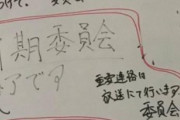 期委員会
了です
重要連絡は
放送にて行います
委員会